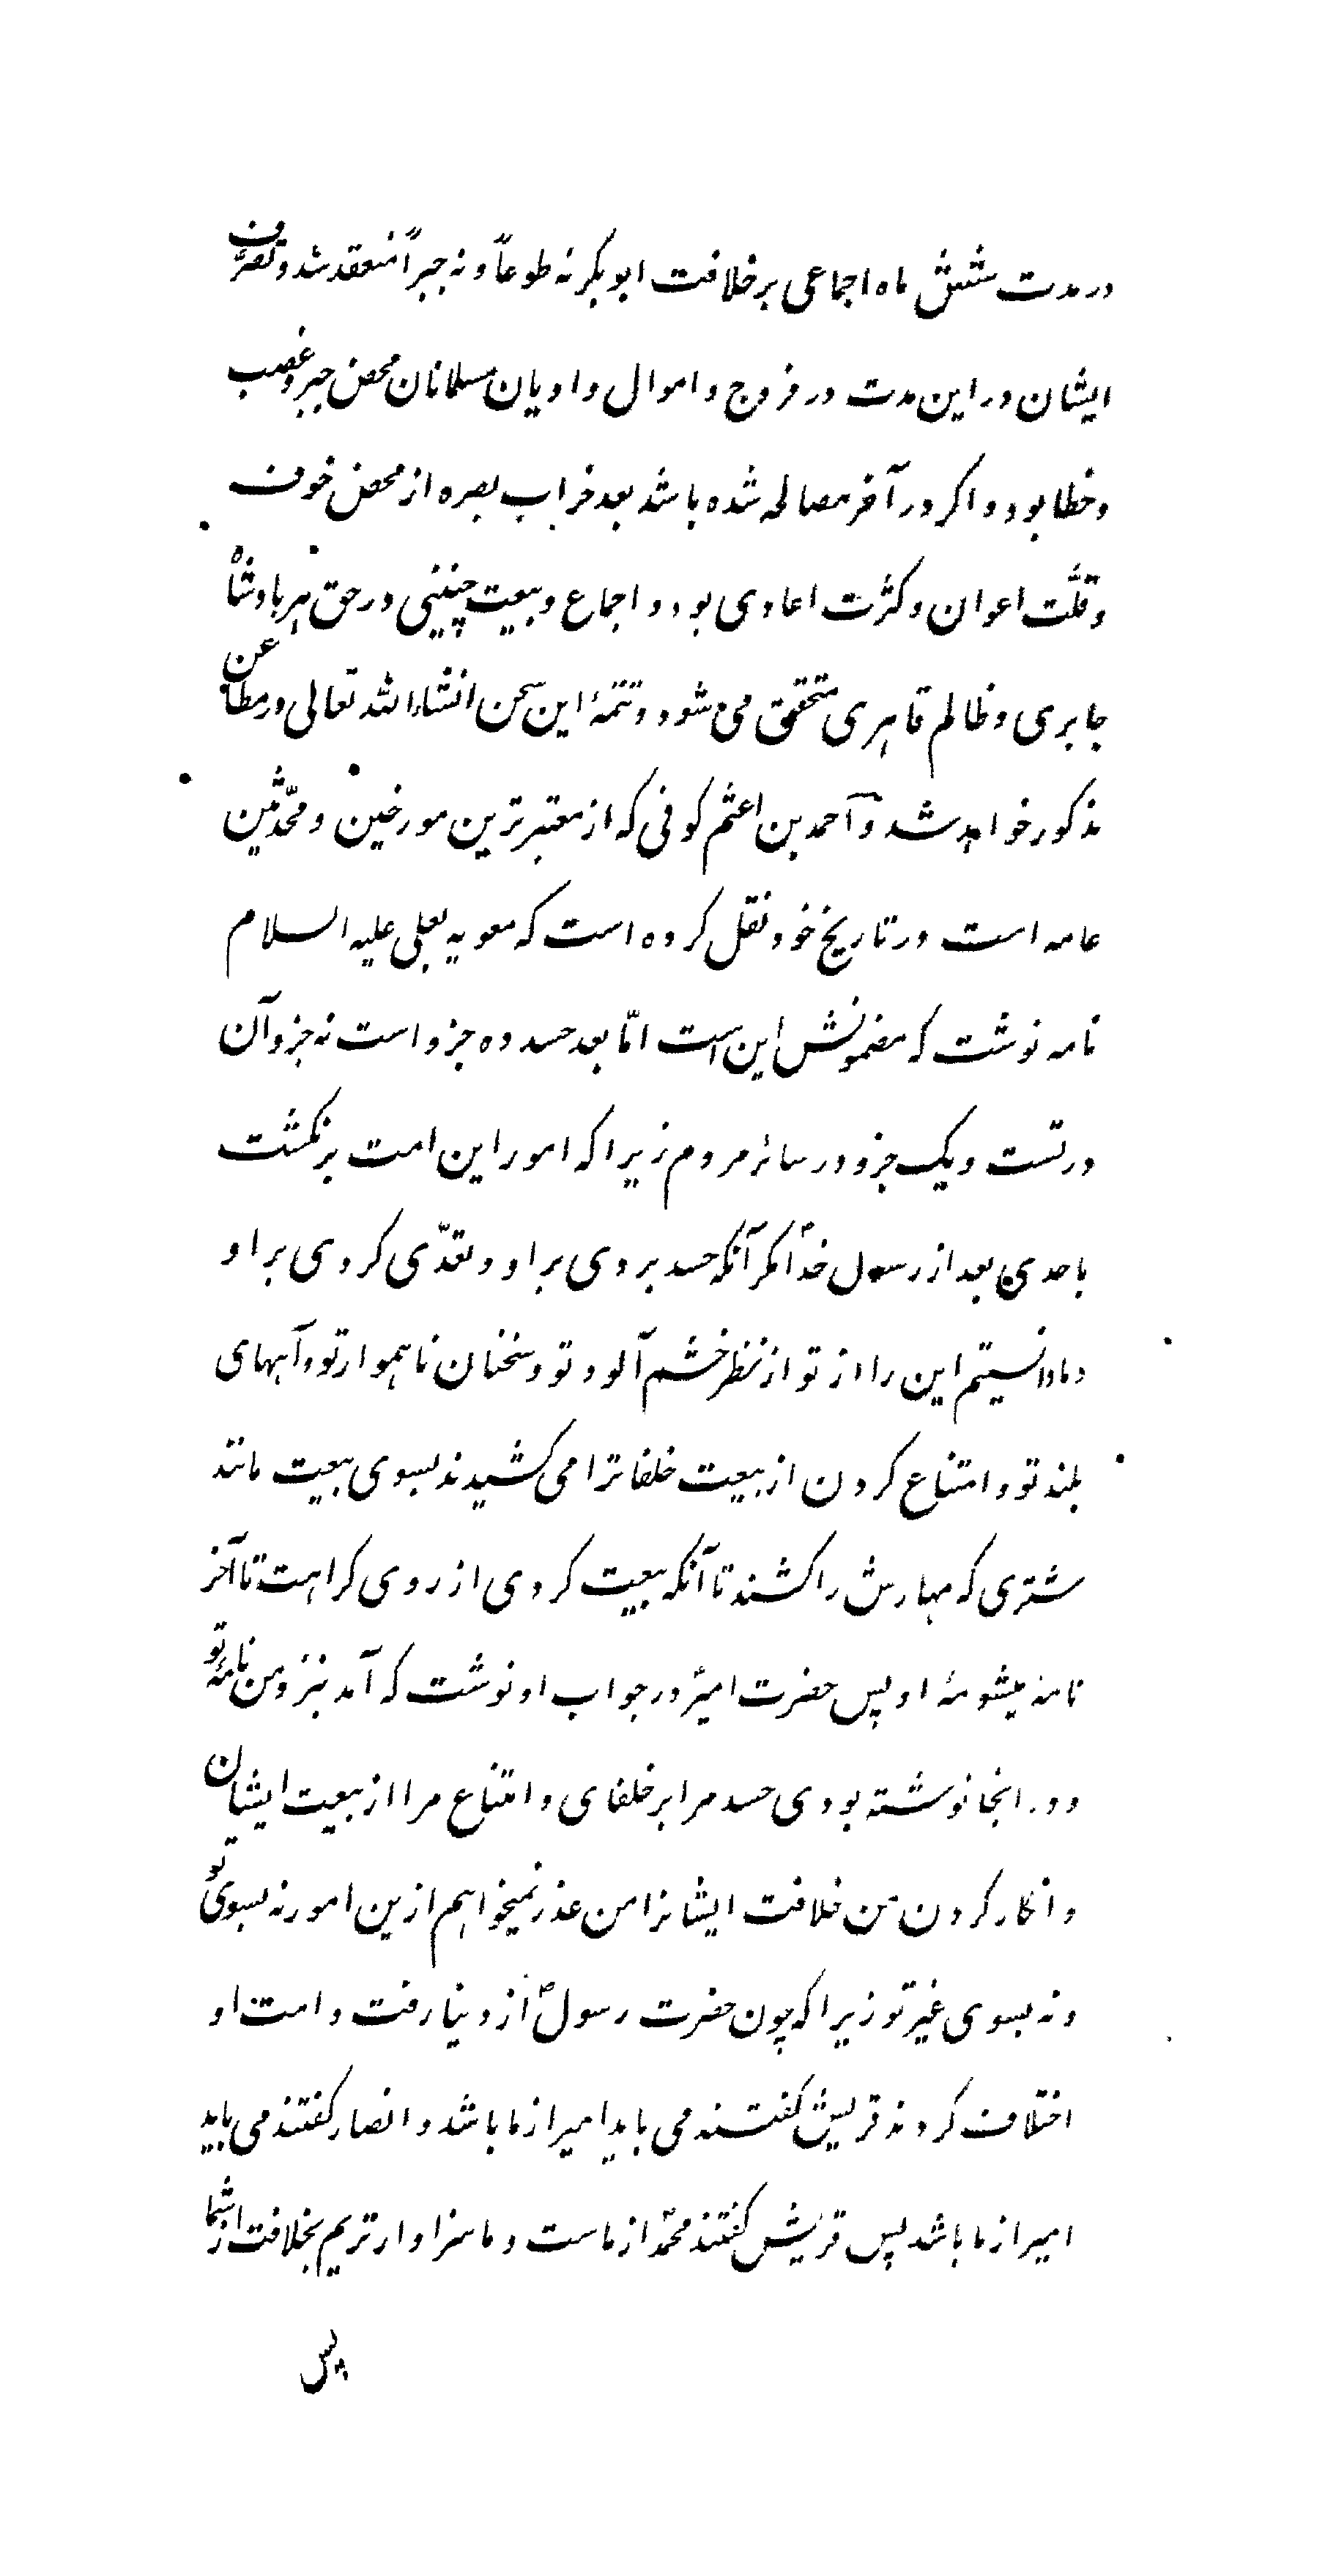 در مدت شش ماه اجماعی بر خلافت ابوبکر نه طوعاً و نه جبراً منعقد شد و تصرّف
ایشان در این مدت در فروج و اموال و ادیان مسلمانان محض جبر و غصب
و خطا بود و اکر در آخر مصالحه شده باشد بعد خراب بصره از محض خوف
و قلّت اعوان و کثرت اعادی بود و اجماع و بیعت چنینی در حق هر بادشاه
جابری و ظالم قاهری متحقق می شود و تتمهٔ این سخن انشاءالله تعالی در مطاعن
مذکور خواهد شد و احمد بن اعثم کوفی که از معتبرترین مورخین و محدّثین
عامه است در تاریخ خود نقل کرده است که معویه بعلی علیه السلام
نامه نوشت که مضمونش این است امّا بعد حسد ده جزو است نه جزو آن
در تست و یک جزو در سائر مردم زیرا که امور این امت برنکشت
باحدی بعد از رسول خداؐ مکر آنکه حسد بردی بر او و تعدّی کردی بر او
و ما دانستیم این را از تو از نظر خشم آلود تو و سخنان ناهموار تو و آههای
بلند تو و امتناع کردن از بیعت خلفا ترا می کشیدند بسوی بیعت مانند
شتری که مهارش را کشند تا آنکه بیعت کردی از روی کراهت تا آخر
نامهٔ میشومهٔ او پس حضرت امیرؑ در جواب او نوشت که آمد بنزد من نامهٔ تو
و در انجا نوشته بودی حسد مرا بر خلفای و امتناع مرا از بیعت ایشان
و انکار کردن من خلافت ایشانرا من عذر نمیخواهم ازین امور نه بسوی تو
و نه بسوی غیر تو زیرا که چون حضرت رسولؐ از دنیا رفت و امت او
اختلاف کردند قریش کفتند می باید امیر از ما باشد و انصار کفتند می باید
امیر از ما باشد پس قریش کفتند محمدؐ از ماست و ما سزاوارتریم بخلافت از شما
پس